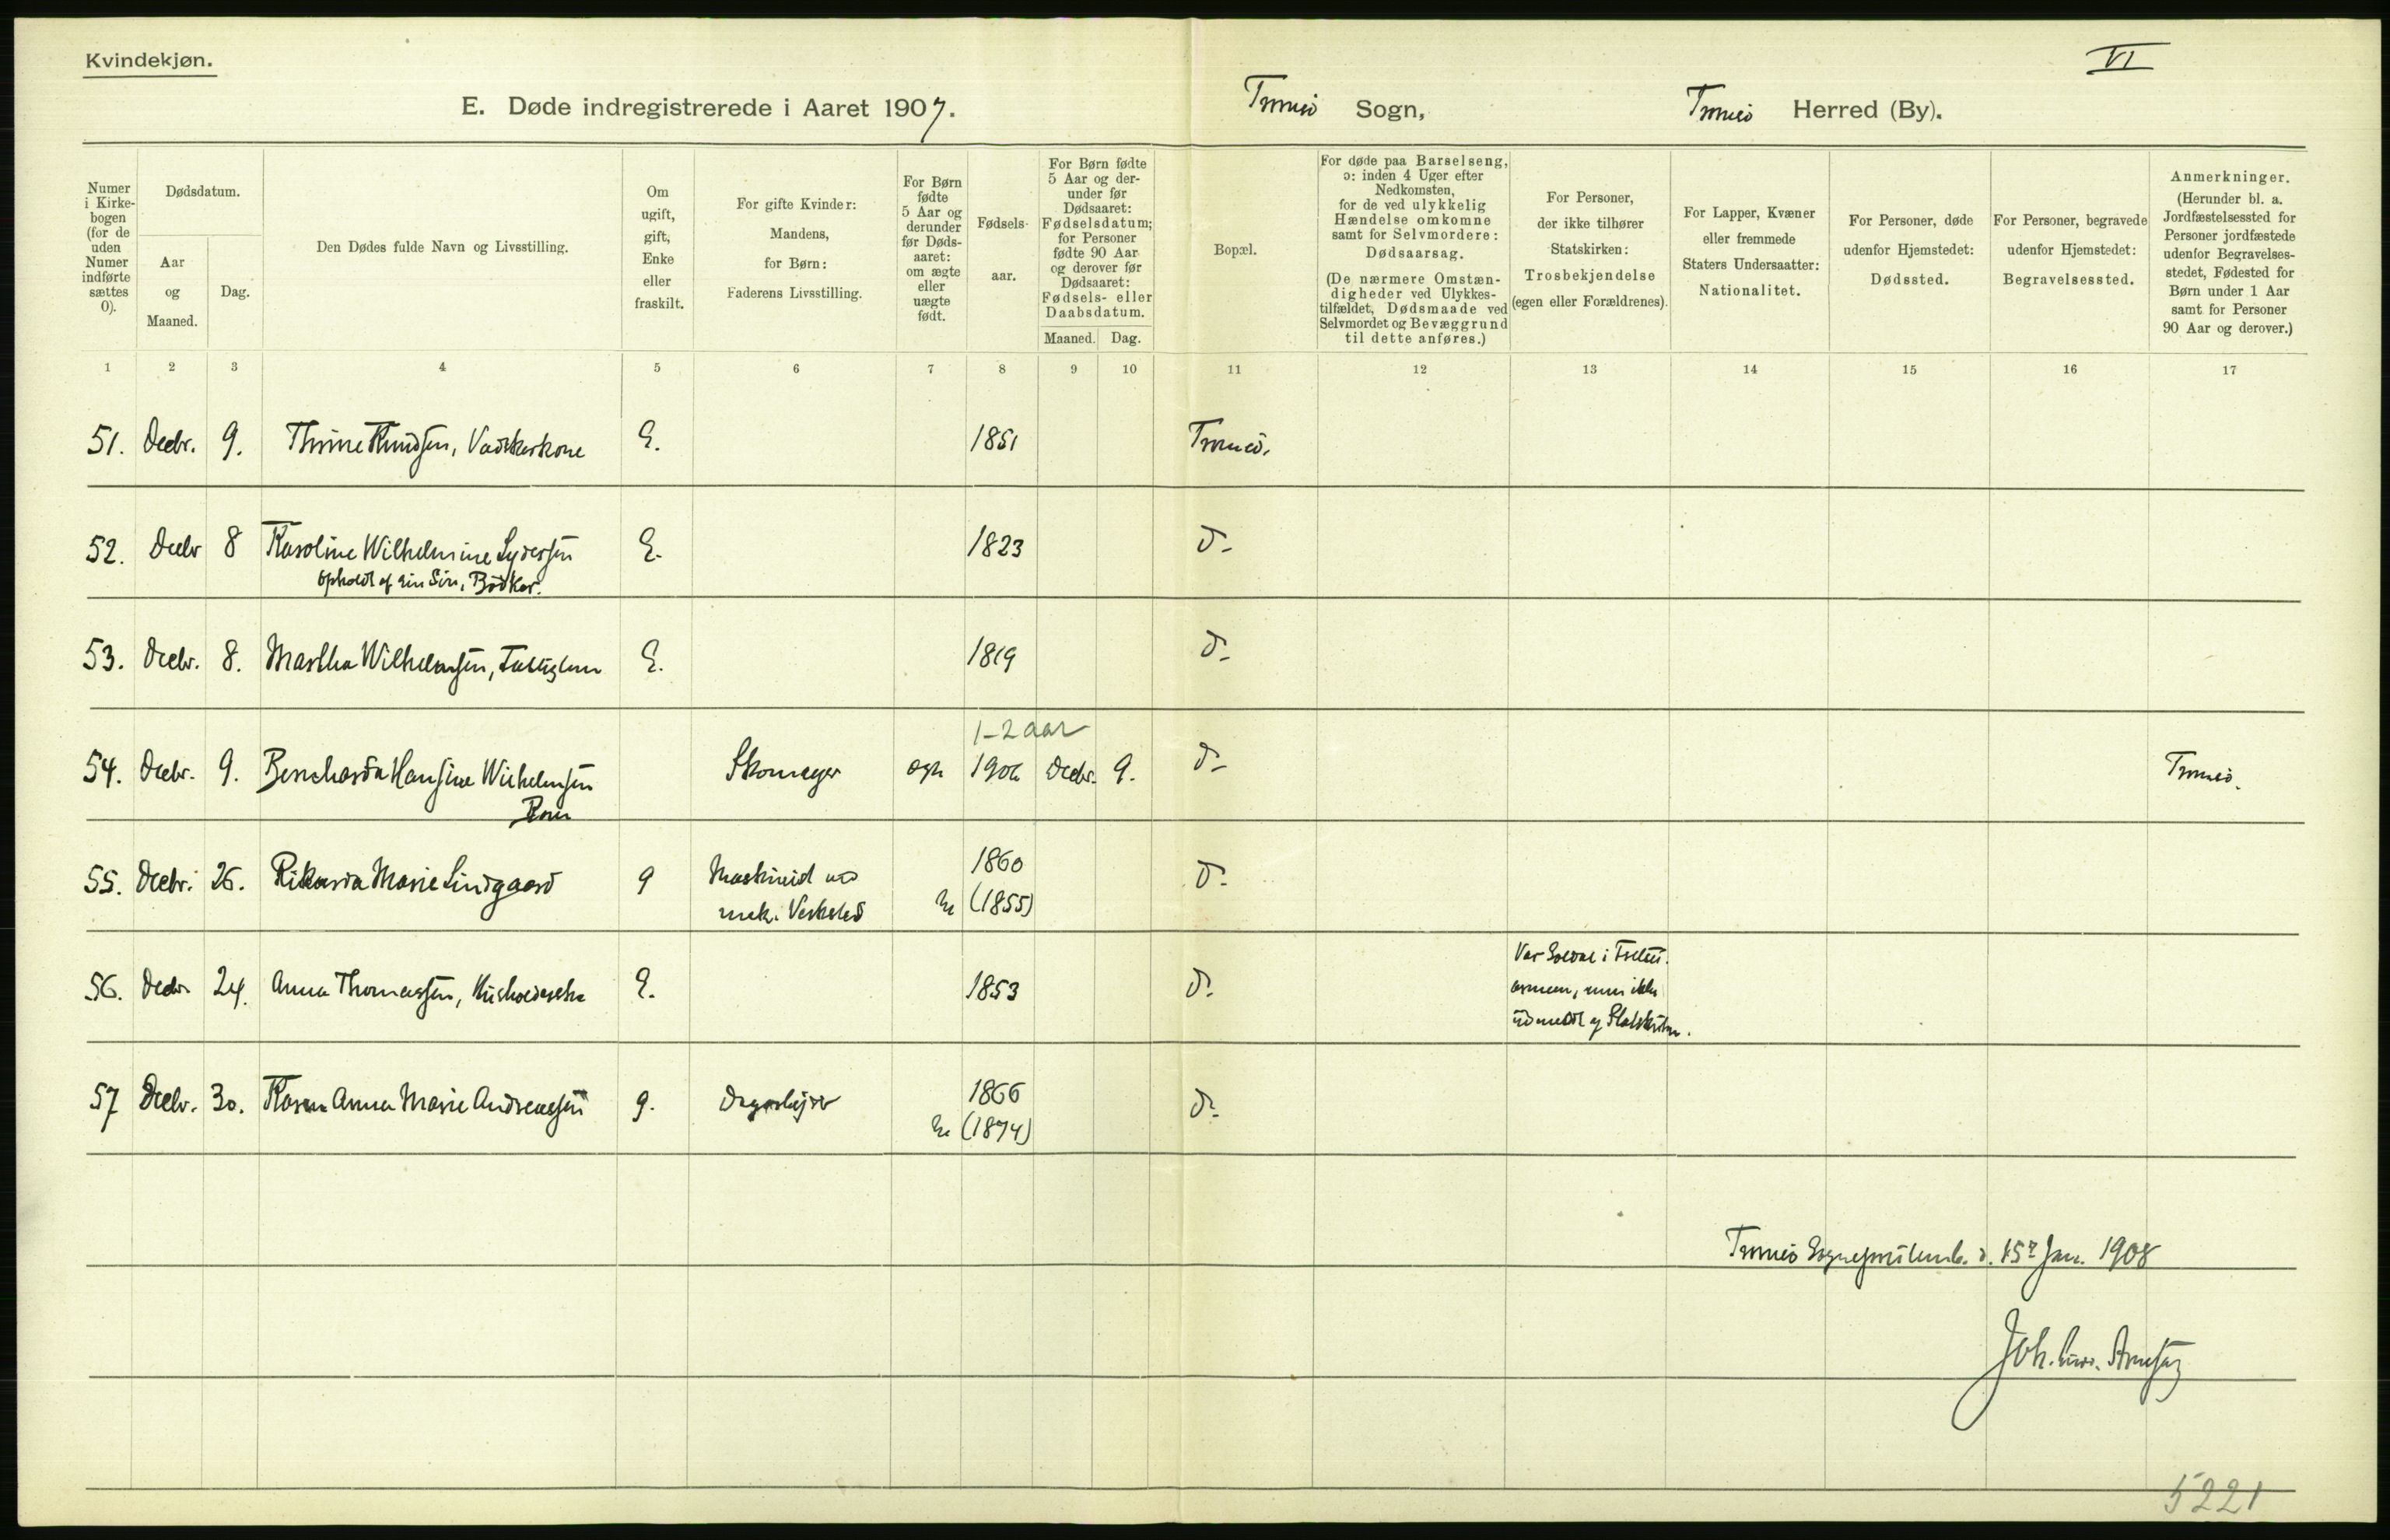 Kvindekjøn.
VI
E. Døde indregistrerede i Aaret 1907.
Tromsö Sogn,
Tromsö Herred (By).
Numer i Kirkebogen (for de uden Numer indførte sættes 0).
Dødsdatum.
Aar og Maaned.
Dag.
Den Dødes fulde Navn og Livsstilling.
Om ugift, gift, Enke eller fraskilt.
For gifte Kvinder: Mandens, for Børn: Faderens Livsstilling.
For Børn fødte 5 Aar og derunder før Dødsaaret: om ægte eller uægte født.
Fødselsaar.
For Børn fødte 5 Aar og derunder før Dødsaaret: Fødselsdatum; for Personer fødte 90 Aar og derover før Dødsaaret: Fødsels- eller Daabsdatum.
Maaned. Dag.
Bopæl.
For døde paa Barselseng, ɔ: inden 4 Uger efter Nedkomsten, for de ved ulykkelig Hændelse omkomne samt for Selvmordere: Dødsaarsag.
(De nærmere Omstændigheder ved Ulykkestilfældet, Dødsmaade ved Selvmordet og Bevæggrund til dette anføres.)
For Personer, der ikke tilhører Statskirken: Trosbekjendelse (egen eller Forældrenes).
For Lapper, Kvæner eller fremmede Staters Undersaatter: Nationalitet.
For Personer, døde udenfor Hjemstedet: Dødssted.
For Personer, begravede udenfor Hjemstedet: Begravelsessted.
Anmerkninger. (Herunder bl. a. Jordfæstelsessted for Personer jordfæstede udenfor Begravelsesstedet, Fødested for Børn under 1 Aar samt for Personer 90 Aar og derover.)
1 2 3 4 5 6 7 8 9 10 11 12 13 14 15 16 17
51. Decbr. 9. Thrine Knudsen, Vaskerkone E. 1851 Tromsö.
52. Decbr 8 Karoline Wilhelmine Lydersen E. 1823 d-
opholdt af sin Sön, Bödker.
53. Decbr. 8. Martha Wilhelmsen, Fattiglem E. 1819 d-
1-2 aar
54. Decbr. 9. Bernharda Hansine Wilhelmsen Skomager egte 1906 Decbr. 9. d- Tromsö.
Barn
55. Decbr. 26. Rikarda Marie Lindgaard g Maskinist ved 1860 d-
mek. Verksted (1855)
56. Decbr 24. Anna Thomassen, Husholderske E. 1853 d- Var Soldat i Frelses-
armeen, men ikke
udmeldt af Statskirken.
57 Decbr. 30. Karen Anna Marie Andreassen g. Dagarbejder 1866 d-
(1874)
Tromsö Sogneprestemb. d. 15de Jan. 1908
Joh.
5221